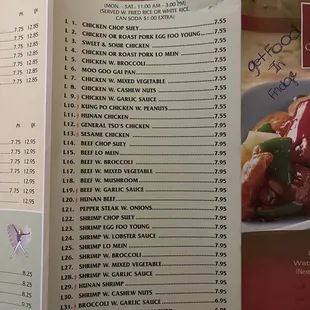 (MON. - SAT.: 11:00 AM - 3:00 PM)
(SERVED W. FRIED RICE OR WHITE RICE.
CAN SODA $1.00 EXTRA)
L 1. CHICKEN CHOP SUEY 7.55
L 2. CHICKEN OR ROAST PORK EGG FOO YOUNG 7.55
L 3. SWEET & SOUR CHICKEN 7.55
L 4. CHICKEN OR ROAST PORK LO MEIN 7.55
L 5. CHICKEN W. BROCCOLI 7.55
L 6. MOO GOO GAI PAN 7.55
L 7. CHICKEN W. MIXED VEGETABLE 7.55
L 8. CHICKEN W. CASHEW NUTS 7.55
L 9. CHICKEN W. GARLIC SAUCE 7.55
L10. KUNG PO CHICKEN W. PEANUTS 7.55
L11. HUNAN CHICKEN 7.55
L12. GENERAL TSO'S CHICKEN 7.55
L13. SESAME CHICKEN 7.55
L14. BEEF CHOP SUEY 7.55
L15. BEEF LO MEIN 7.55
L16. BEEF W. BROCCOLI 7.55
L17. BEEF W. MIXED VEGETABLE 7.55
L18. BEEF W. MUSHROOM 7.55
L19. BEEF W. GARLIC SAUCE 7.55
L20. HUNAN BEEF 7.55
L21. PEPPER STEAK W. ONIONS 7.55
L22. SHRIMP CHOP SUEY 7.55
L23. SHRIMP EGG FOO YOUNG 7.55
L24. SHRIMP W. LOBSTER SAUCE 7.55
L25. SHRIMP LO MEIN 7.55
L26. SHRIMP W. BROCCOLI 7.55
L27. SHRIMP W. MIXED VEGETABLE 7.55
L28. SHRIMP W. GARLIC SAUCE 7.55
L29. HUNAN SHRIMP 7.55
L30. SHRIMP W. CASHEW NUTS 7.55
L31. BROCCOLI W. GARLIC SAUCE 6.95
6.95
get Food
In
Fridge
7.75 12.95
7.75 12.95
7.75 12.95
7.75 12.95
7.75 12.95
7.75 12.95
7.75 12.95
8.25
8.25
9.25